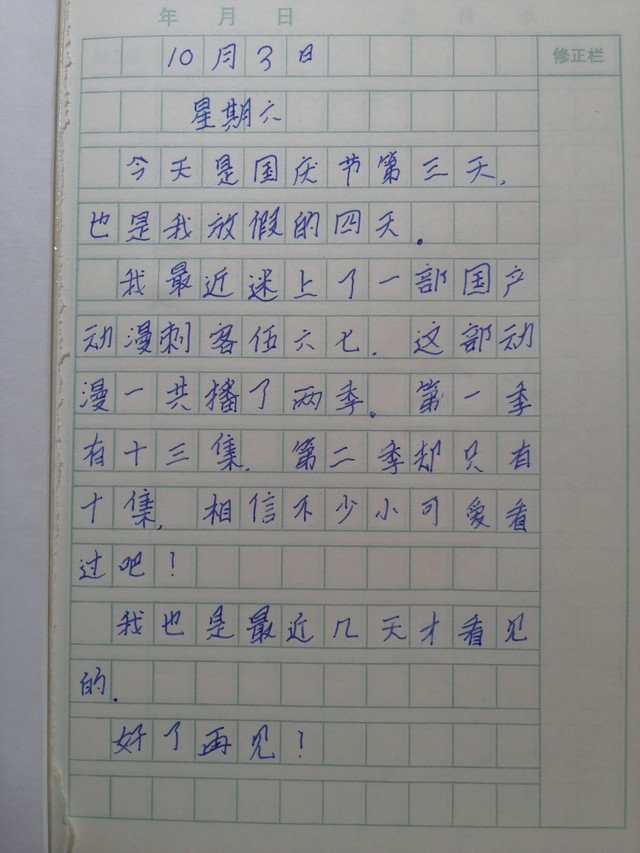 年 月 日
修正栏
10月3日
星期六
今天是国庆节第三天,
也是我放假的四天.
我最近迷上了一部国产
动漫刺客伍六七. 这部动
漫一共播了两季。第一季
有十三集. 第二季却只有
十集, 相信不少小可爱看
过吧!
我也是最近几天才看见
的.
好了再见!